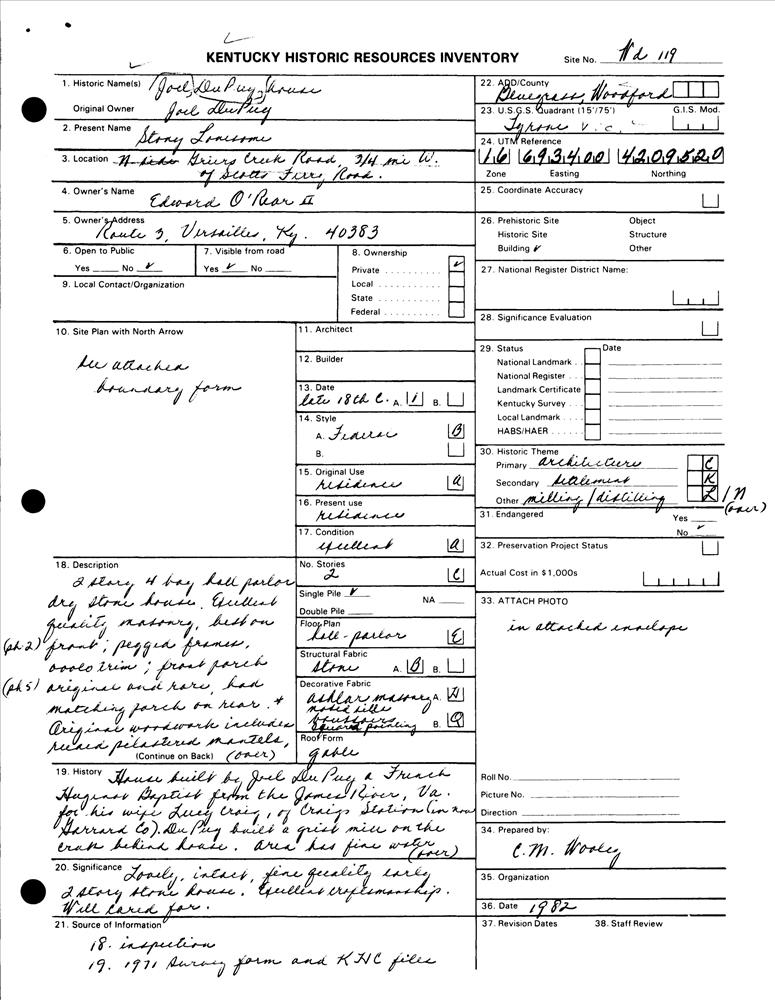 KENTUCKY HISTORIC RESOURCES INVENTORY
Site No. Wd 119
1. Historic Name(s) (Joel DuPuy) house
Original Owner Joel DuPuy
2. Present Name Stony Lonesome
3. Location N side Griers Creek Road, 3/4 mi W.
of Scotts Ferry Road.
4. Owner's Name
Edward O'Rear II
5. Owner's Address
Route 3, Versailles, Ky. 40383
6. Open to Public
Yes No ✓
7. Visible from road
Yes ✓ No
8. Ownership
Private ✓
Local
State
Federal
9. Local Contact/Organization
10. Site Plan with North Arrow
See attached
boundary form
11. Architect
12. Builder
13. Date
late 18th C. A. 1 B.
14. Style
A. Federal B
B.
15. Original Use
residence a
16. Present use
residence
17. Condition
excellent A
18. Description
2 story 4 bay hall parlor
dry stone house. Excellent
quality masonry, best on
(ph 2) front; pegged frames,
ovolo trim; front porch
(ph 5) original and rare, had
matching porch on rear. +
Original woodwork includes
reeded pilastered mantels,
(Continue on Back) (over)
No. Stories
2 C
Single Pile ✓ NA
Double Pile
Floor Plan
hall-parlor E
Structural Fabric
stone A. B B.
Decorative Fabric
ashlar masonry A. H
sills
voussoirs
squared pointing B. Q
Roof Form
gable
19. History House built by Joel DuPuy a French
Huguenot Baptist from the James River, Va.
for his wife Lucy Craig, of Craigs Station (in now
Garrard Co). DuPuy built a grist mill on the
creek behind house. Area has fine water
(over)
20. Significance Lovely, intact, fine quality early
2 story stone house. Excellent craftsmanship.
Well cared for.
21. Source of Information
18. inspection
19. 1971 survey form and KHC files
22. ADD/County
Bluegrass, Woodford
23. U.S.G.S. Quadrant (15'/75') G.I.S. Mod.
Tyrone
24. UTM Reference
16 693400 4209520
Zone Easting Northing
25. Coordinate Accuracy
26. Prehistoric Site Object
Historic Site Structure
Building ✓ Other
27. National Register District Name:
28. Significance Evaluation
29. Status Date
National Landmark
National Register
Landmark Certificate
Kentucky Survey
Local Landmark
HABS/HAER
30. Historic Theme
Primary architecture C
Secondary settlement K
Other milling/distilling L/N
(over)
31. Endangered Yes
No ✓
32. Preservation Project Status
Actual Cost in $1,000s
33. ATTACH PHOTO
in attached envelope
Roll No.
Picture No.
Direction
34. Prepared by:
C.M. Wooley
35. Organization
36. Date 1982
37. Revision Dates 38. Staff Review